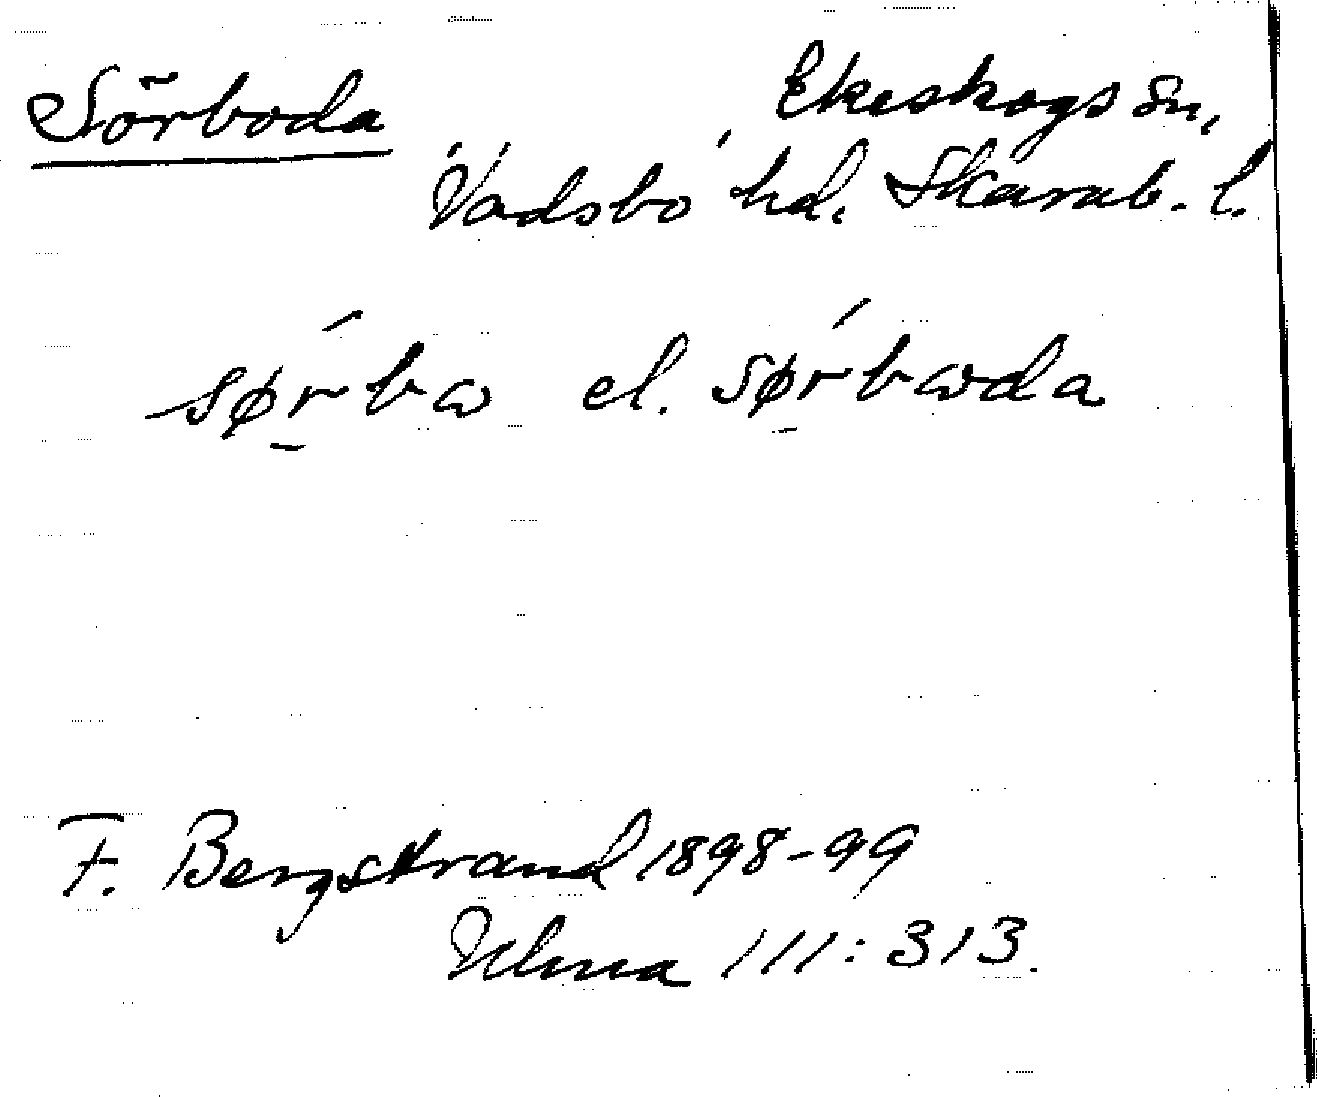 Sörboda
Ekeskogs sn,
Vadsbo hd. Skarab. l.
sørbω el. sørbωda
F. Bergstrand 1898-99
Ulma 111:313.